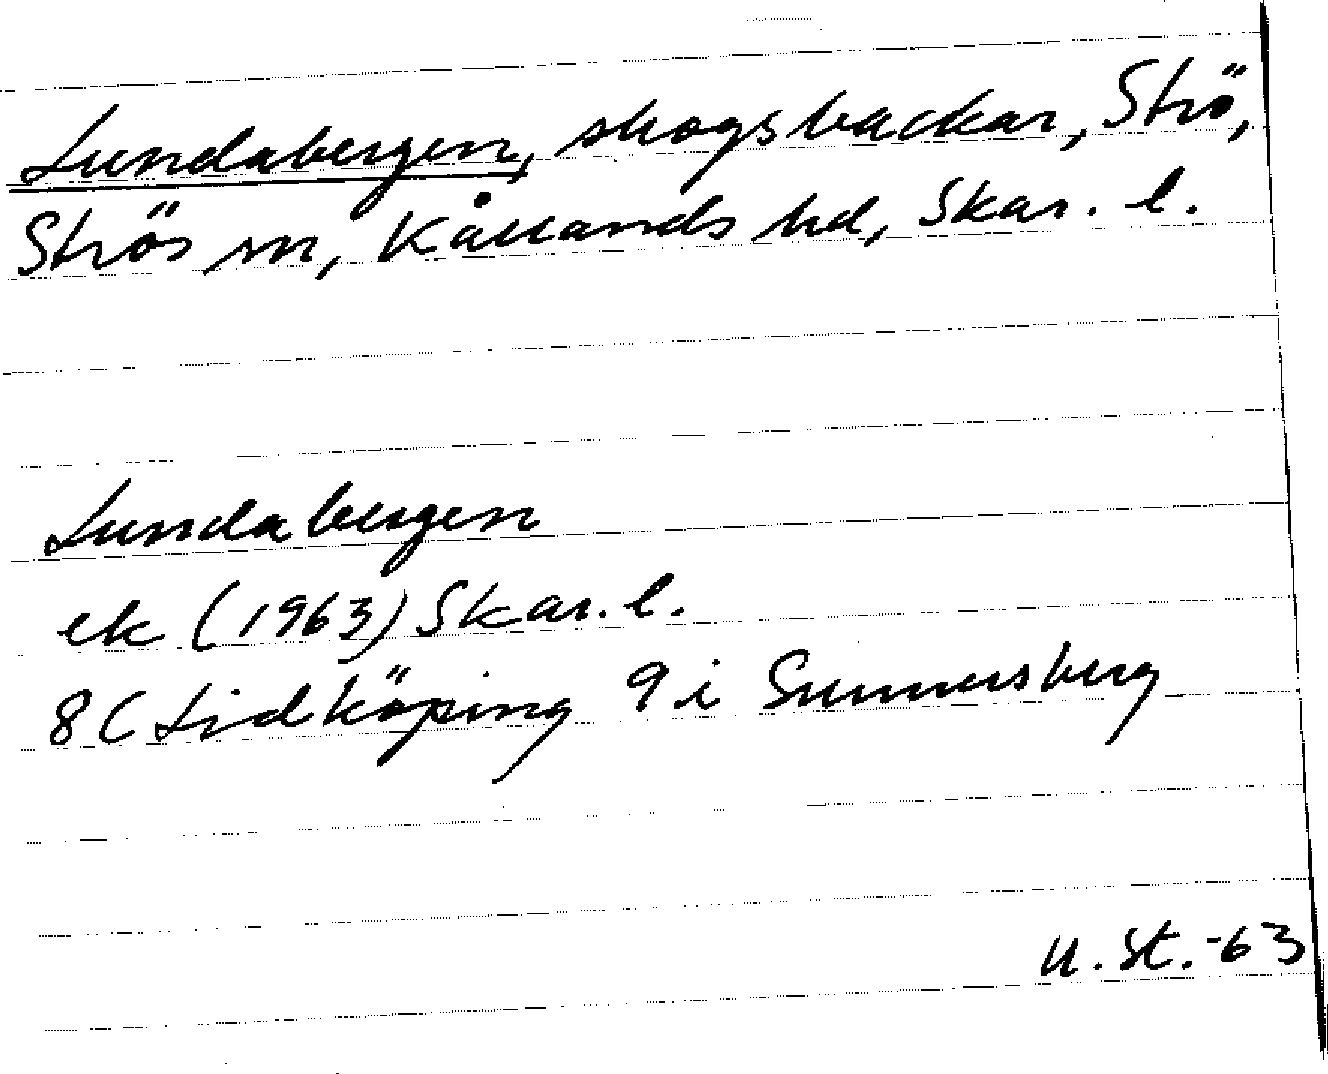 Lundabergen, skogsbackar, Strö,
Strös sn, Kållands hd, Skar. l.
Lundabergen
ek (1963) Skar. l.
8C Lidköping 9i Sunnersberg
U. St. -63